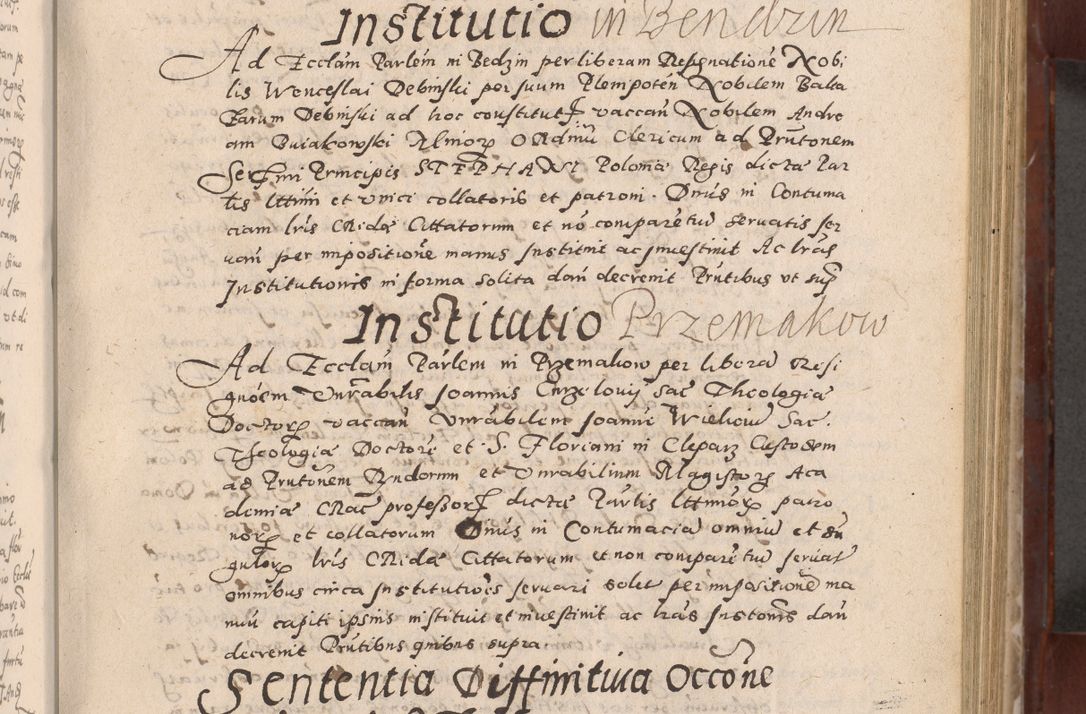 Institutio in Bendzin
Ad Ecclam Parlem in Bedzin per liberam Resignationē Nobi
lis Wenceslai Debinski per suum Plempotēn Nobilem Balta
zarum Debinski ad hoc constitut vaccań Nobilem Andre
am Buiakowski Minor Ordinū Clericum ad Prntōnem
Sermi Principis STEPHANI Poloniæ Regis dictæ Par
lis lttimi et vnici collatoris et patroni. Dnus in Contuma
ciam lris CRidæ Cittatorum et nō comparētiū servatis ser
uań per impositionē manus Instituit ac inuestiuit Ac lrās
Institutionis in forma solita dań decreuit Pntibus vt sup
Institutio Przemakow
Ad Ecclam Parlem in Przemakow per liberā Resi
gnōem Vnrabilis Joannis sac Theologiæ
Doctor vaccań Vnrabilem Joannē Wielicu Sac.
Theologiæ Doctorē et S. Floriani in Clepar Custodem
ad Prntōnem et Vnrabilium Magistor Aca
demiæ CRac professor dictæ Parlis lttimor patro
nor et collatorum Dnus in Contumaciā omniū et siń
gulor lris CRidæ Cittatorum et non comparētiū seruat
omnibus circa Institutiōēs seruari solit per impositionē ma
nuū capiti ipsius instituit et inuestiuit ac lras Instonis dań
decreuit Pntibus quibus supra.
Sententia Diffinitiua Occōne